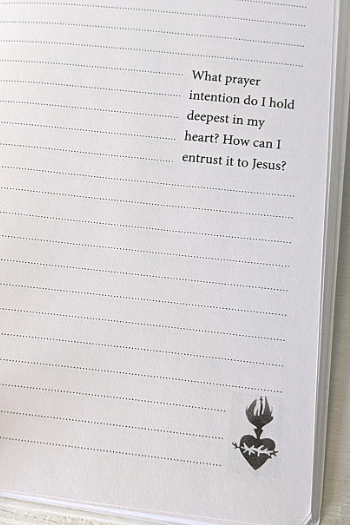 What prayer
intention do I hold
deepest in my
heart? How can I
entrust it to Jesus?